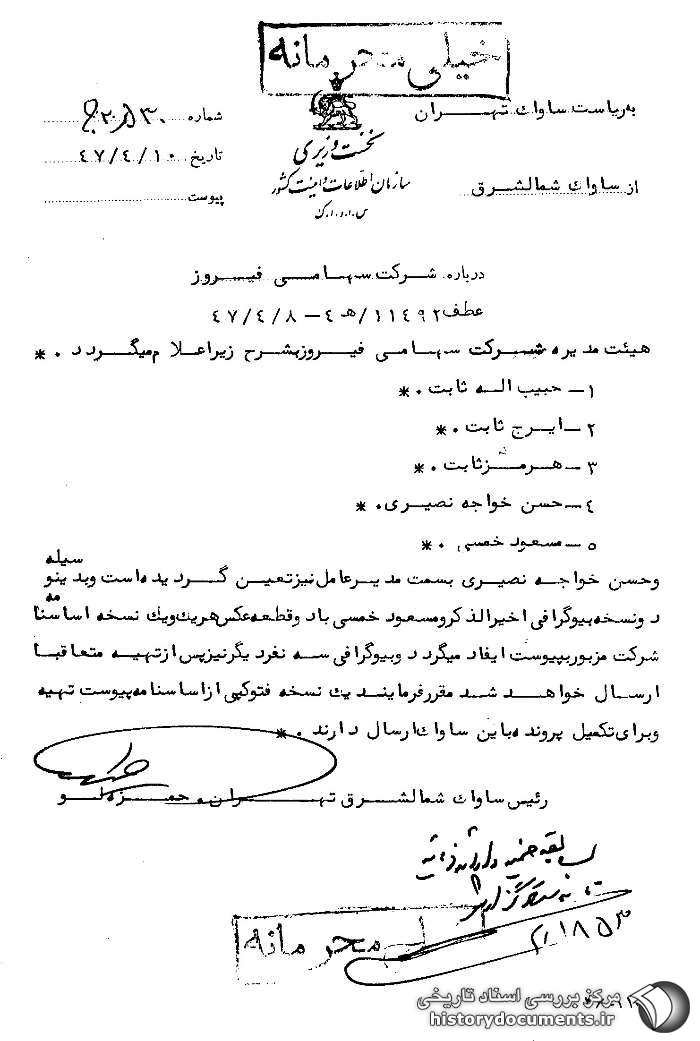 خیلی محرمانه
به ریاست ساواك تهران
شماره
نخست وزیری
تاریخ ٤٧/٤/١٠
سازمان اطلاعات و امنیت کشور
از ساواك شمالشرق
پیوست
س.ا.و.ا.ک
درباره شرکت سهامی فیروز
عطف ١١٤٩٢/هـ ٤ – ٤٧/٤/٨
هیئت مدیره شرکت سهامی فیروز بشرح زیر اعلام میگردد . *
١– حبیب اله ثابت . *
٢ –ایرج ثابت . *
٣ –هرمز ثابت . *
٤ –حسن خواجه نصیری . *
٥ –مسعود خمسی . *
وحسن خواجه نصیری بسمت مدیرعامل نیز تعیین گردیده است وبدینوسیله
دونسخه بیوگرافی اخیرالذکر ومسعود خمسی باد وقطعه عکس هریك ویك نسخه اساسنامه
شرکت مزبور بپیوست ایفاد میگردد وبیوگرافی سه نفر دیگر نیز پس از تهیه متعاقبا
ارسال خواهد شد مقرر فرمایند یك نسخه فتوکپی از اساسنامه پیوست تهیه
وبرای تکمیل پرونده باین ساواك ارسال دارند . *
رئیس ساواك شمالشرق تهران . حمزه لو
محرمانه
مرکز بررسی اسناد تاریخی
historydocuments.ir